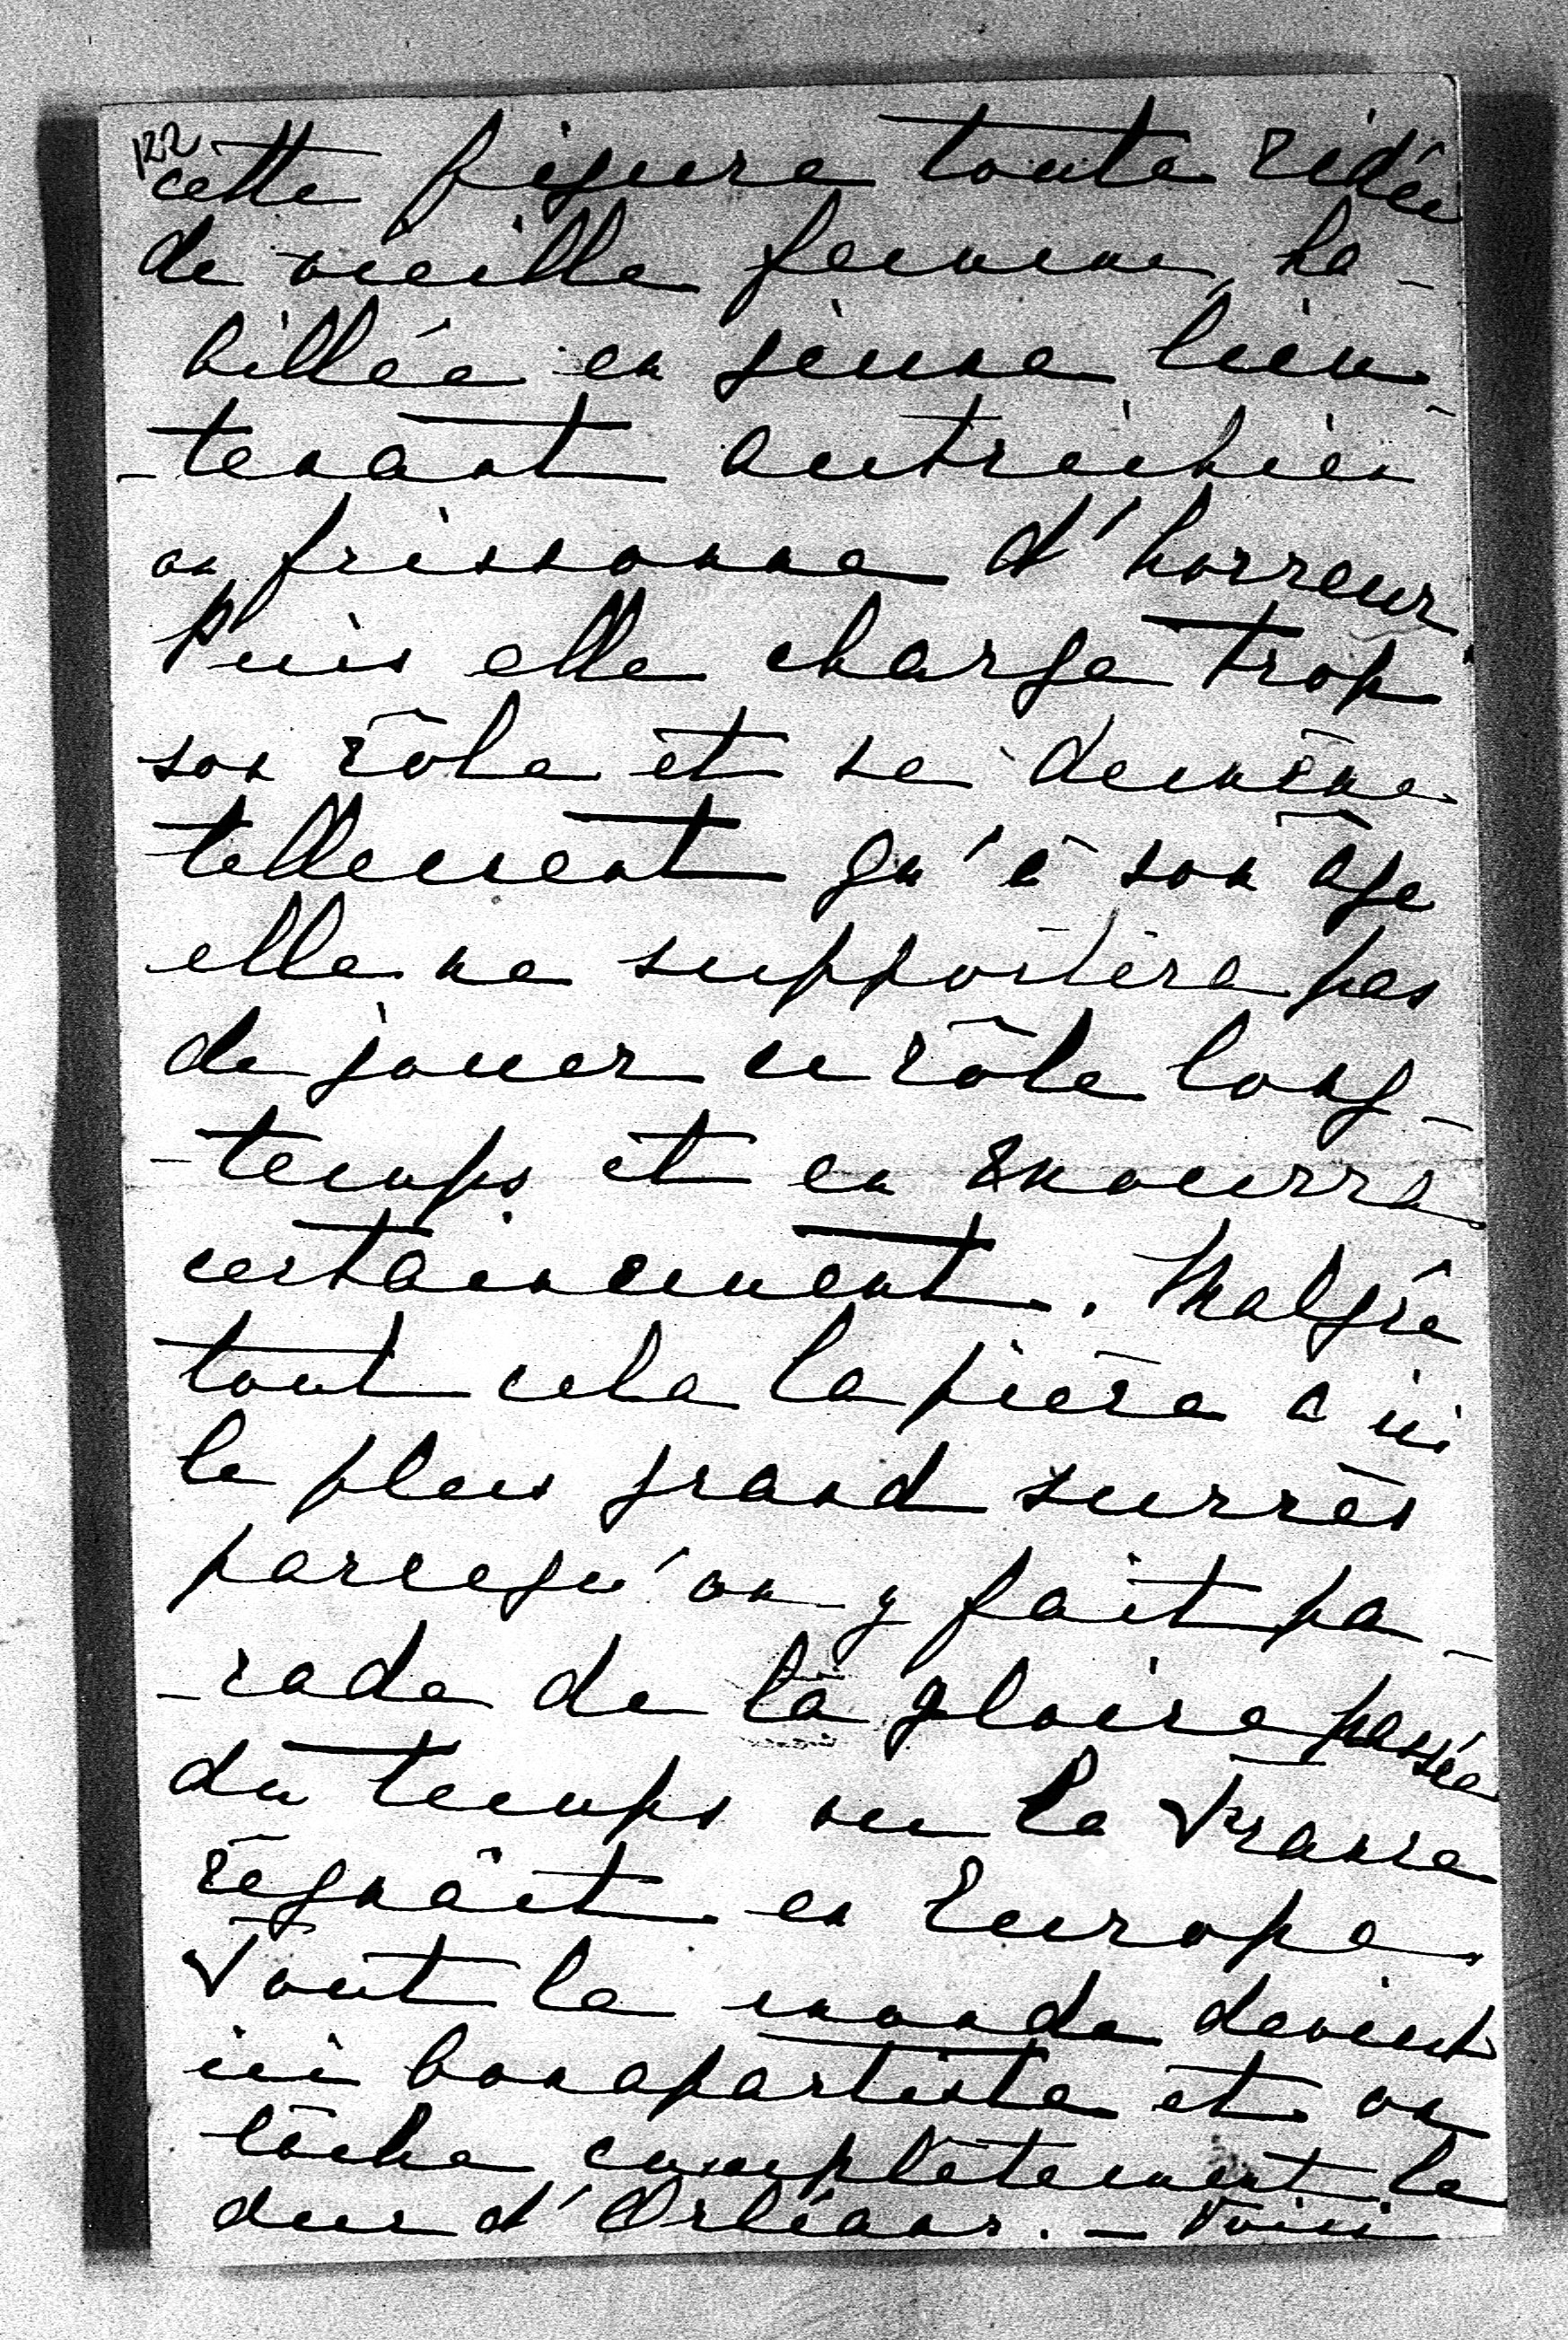 122
cette figure toute ridée
de vieille femme, ha-
billée en jeune lieu-
-tenant autrichien
on frissonne d'horreur.
Puis elle charge trop
son rôle et se démène
tellement qu'à son âge
elle ne supportera pas
de jouer ce rôle long-
-temps et en mourra
certainement. Malgré
tout cela la pièce a ici
le plus grand succès
parcequ'on y fait pa-
-rade de la gloire passée
du temps ou la France
régnait en Europe.
Tout le monde devient
ici bonapartiste et on
lâche complètement le
duc d'Orléans. — Voici